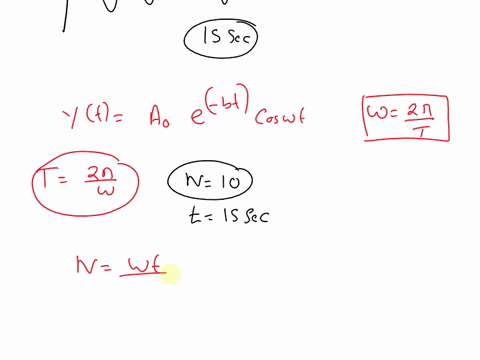 15 Sec
y(t) = A₀ e^(-bt) cos ωt
ω = 2π/T
T = 2π/ω
N = 10
t = 15 Sec
N = ωt